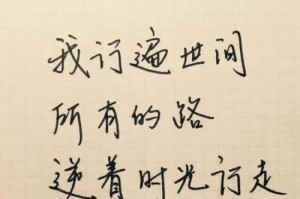 我行遍世间
所有的路
逆着时光行走